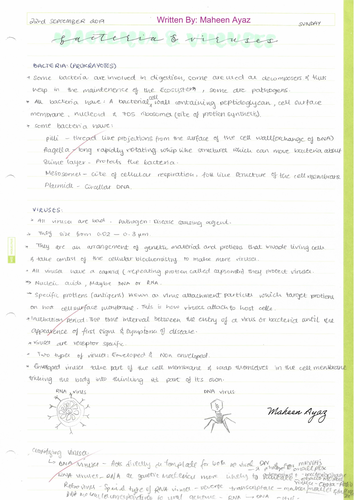 22nd SEPTEMBER 2019
Written By: Maheen Ayaz
SUNDAY
bacteria & viruses
BACTERIA: (PROKARYOTES)
• Some bacteria are involved in digestion, some are used as decomposers & thus
help in the maintenance of the ecosystem, some are pathogens.
• All bacteria have: A bacterial cell wall containing peptidoglycan, cell surface
membrane, nucleoid & 70S ribosomes (site of protein synthesis).
• Some bacteria have:
pili - thread like projections from the surface of the cell wall (exchange of DNA)
flagella - long rapidly rotating whip like structures which can move bacteria about
Slime layer - Protects the bacteria.
Mesosomes - Site of cellular respiration, fold like structure of the cell membrane
Plasmid - Circular DNA.
VIRUSES:
• All viruses are - Pathogen: disease causing agent.
• They size from 0.02 - 0.3 µm
• They are an arrangement of genetic material and proteins that invade living cells
& take control of the cellular biochemistry to make more viruses.
• All viruses have a capsid (repeating protein called capsomeres) they protect viruses.
• Nucleic acids, Maybe DNA or RNA.
• Specific proteins (antigens) known as virus attachment particles which target proteins
on host cell surface membrane. This is how viruses attach to host cells.
• Incubation period: the time interval between the entry of a virus or bacteria until the
appearance of first signs & symptoms of disease.
• Viruses are receptor specific.
• Two types of virus: Enveloped & Non enveloped.
• Enveloped viruses take part of the cell membrane & wrap themselves in the cell membrane
tricking the body into thinking its part of its own.
RNA VIRUS
DNA VIRUS
Maheen Ayaz
Classifying viruses
DNA viruses - Acts directly as template for both
RNA viruses - RNA as genetic material more likely to
Retroviruses - Special type of RNA virus - reverse transcriptase -